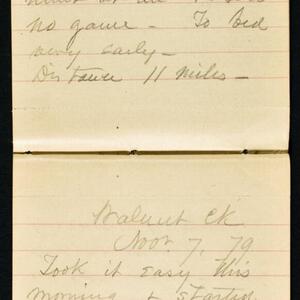 no game - To bed
very early -
Distance 11 miles -
Walnut Ck
Nov. 7, 79
Took it easy this
morning & started